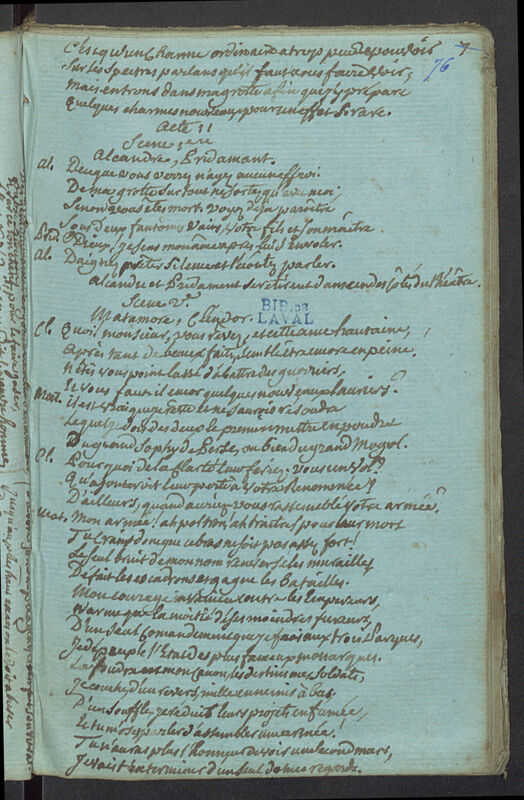 C'est qu'un charme ordinaire a trop peu de pouvoir
76
Sur les spectres parlans qu'il faut vous faire voir;
Mais entrons dans ma grotte afin que j'y prépare
Quelques charmes nouveaux pour un effet si rare.
Acte II
Scene 1ere
Alcandre, Pridamant.
al. De ce que vous verrez n'ayez aucun effroi.
De ma grotte surtout ne sortez qu'avec moi,
Sinon vous êtes mort. voyez déja paraître
Sous deux fantomes vains, votre fils et son maître.
Prid. Dieux, je sens mon âme après lui s'envoler.
al. Daignez prêter silence et l'écouter parler.
alcandre et Pridament se retirent dans un des côtés du théâtre.
Scene 2e.
Matamore, Clindor.
BIB. DE
LAVAL
Cl. Quoi! monsieur, vous rêvez, et cette ame hautaine,
après tant de beaux faits, semble être encore en peine.
N'êtes vous point lassé d'abattre des guerriers,
Et vous faut il encor quelques nouveaux lauriers?
Mat. il est vrai que je rêve et ne saurois résoudre
Lequel je dois des deux le premier mettre en poudre
Du grand Sophy de Perse, ou bien du grand Mogol.
Cl. Pourquoi de la clarté leur feriez vous un vol?
Qu'ajouteroit leur perte à votre Renommée?
D'ailleurs, quand auriez vous rassemblé votre armée?
Mat. Mon armée! ah poltron, ah traître! pour leur mort
Tu crains donc que ce bras ne soit pas assez fort!
Le seul bruit de mon nom renverse les murailles
Défait les escadrons et gagne les Batailles.
Mon courage invaincu contre les Empereurs,
N'arme que la moitié de ses moindres fureurs,
D'un seul commandement que je fais aux trois Parques,
Je dépeuple l'Etat des plus fameux monarques.
La foudre est mon canon, les destins mes soldats,
Je couche d'un revers, mille ennemis à bas.
D'un souffle, je réduis leurs projets en fumée,
Et tu m'oses parler d'assembler une armée!
Tu n'auras plus l'honneur de voir un second mars,
Je vais t'exterminer d'un seul de mes regards.